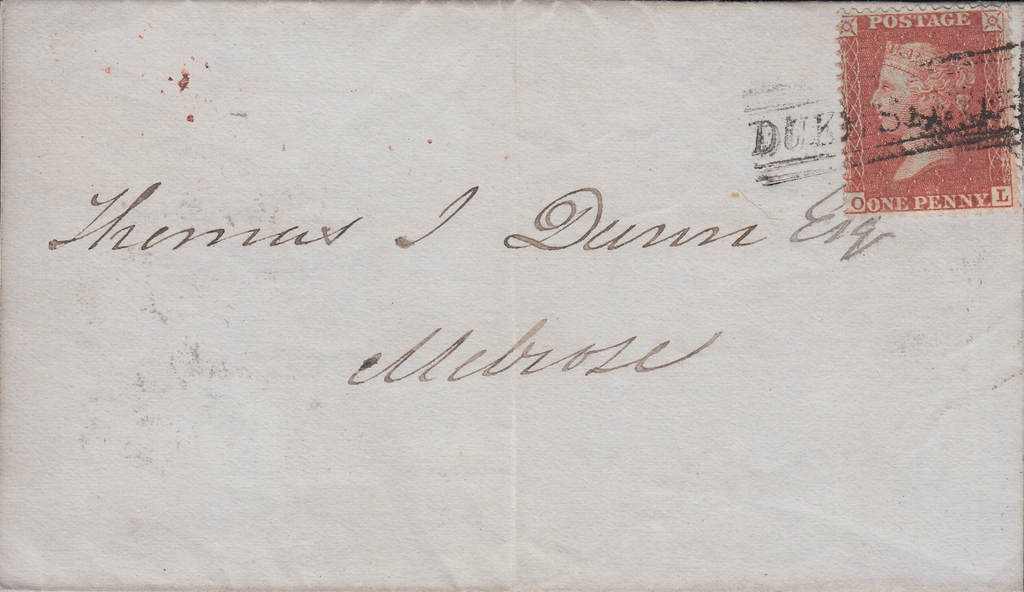 POSTAGE
DUKE
O ONE PENNY L
Thomas J Dunn Esq
Melrose